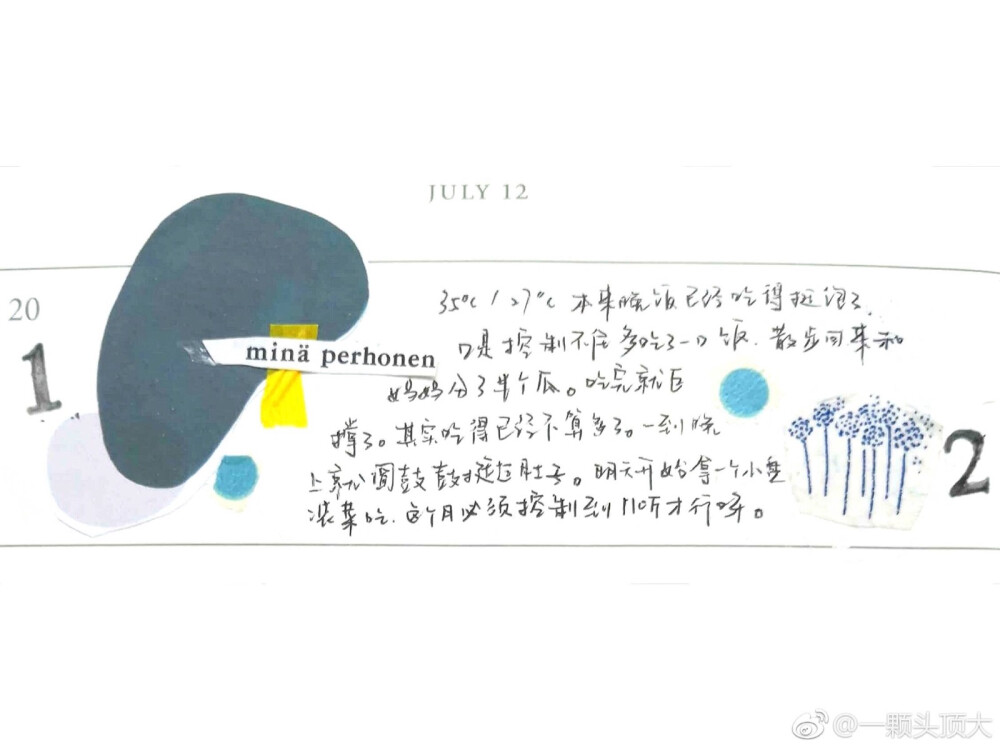 JULY 12
20
1
minä perhonen
35℃ / 27℃ 本来晚饭已经吃得挺饱了,
口是控制不住多吃了一口饭. 散步回来和
妈妈分了半个瓜。吃完就巨
撑了。其实吃得已经不算多了。一到晚
上就圆鼓鼓挺起肚子。明天开始拿一个小盘
装菜吃. 这个月必须控制到110斤才行呀。
2
@一颗头顶大